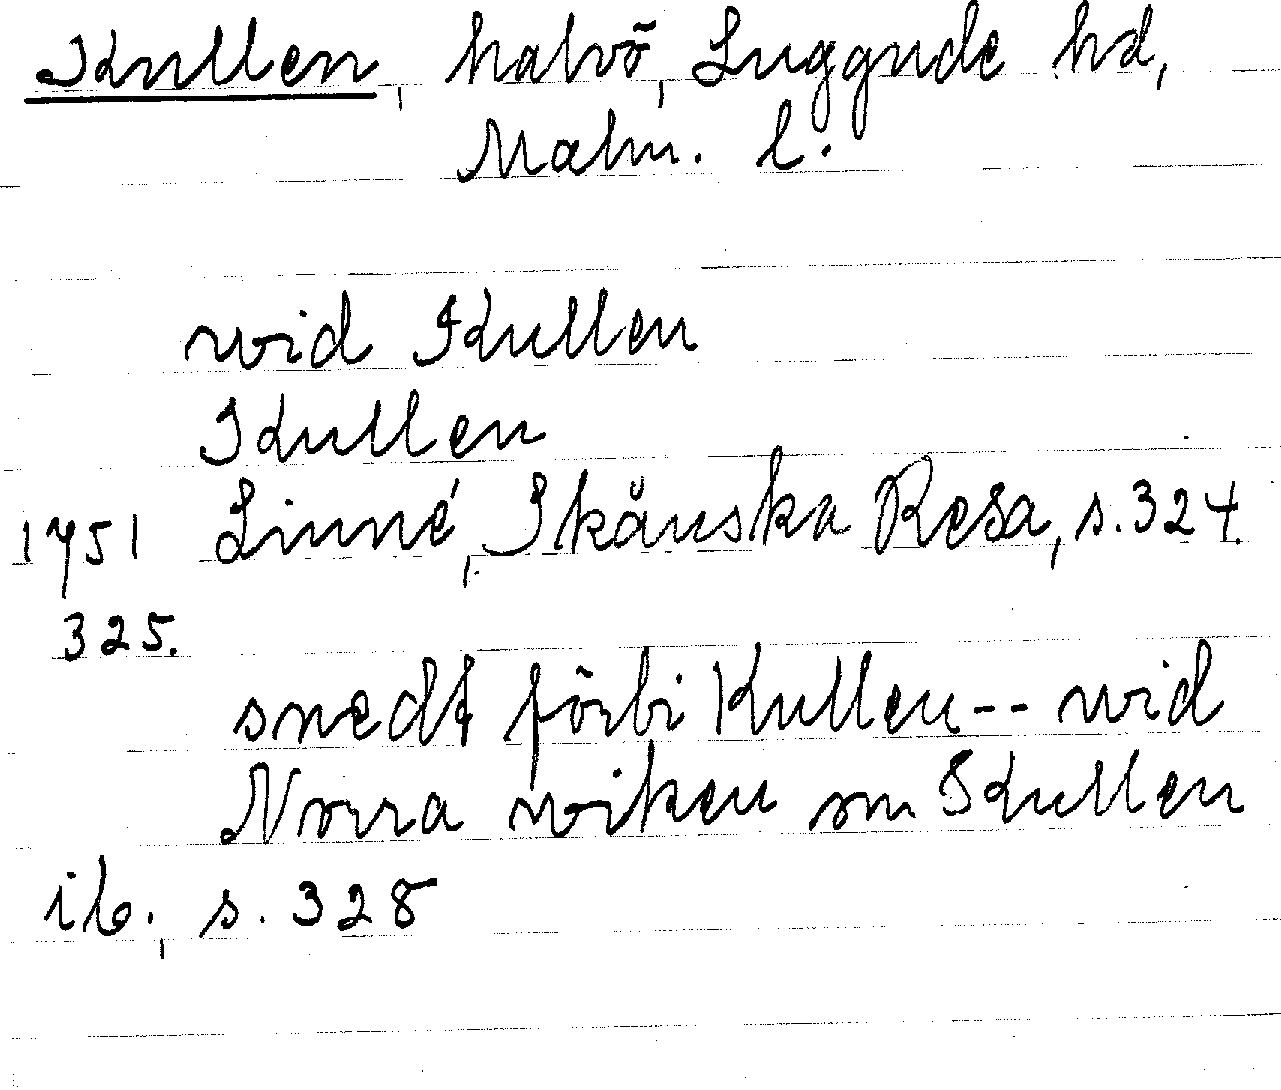 Kullen, halvö, Luggude hd,
Malm. l.
wid Kullen
Kullen
1751 Linné, Skånska Resa, s. 324.
325.
snedt förbi Kullen -- wid
Norra wiken om Kullen
ib., s. 328